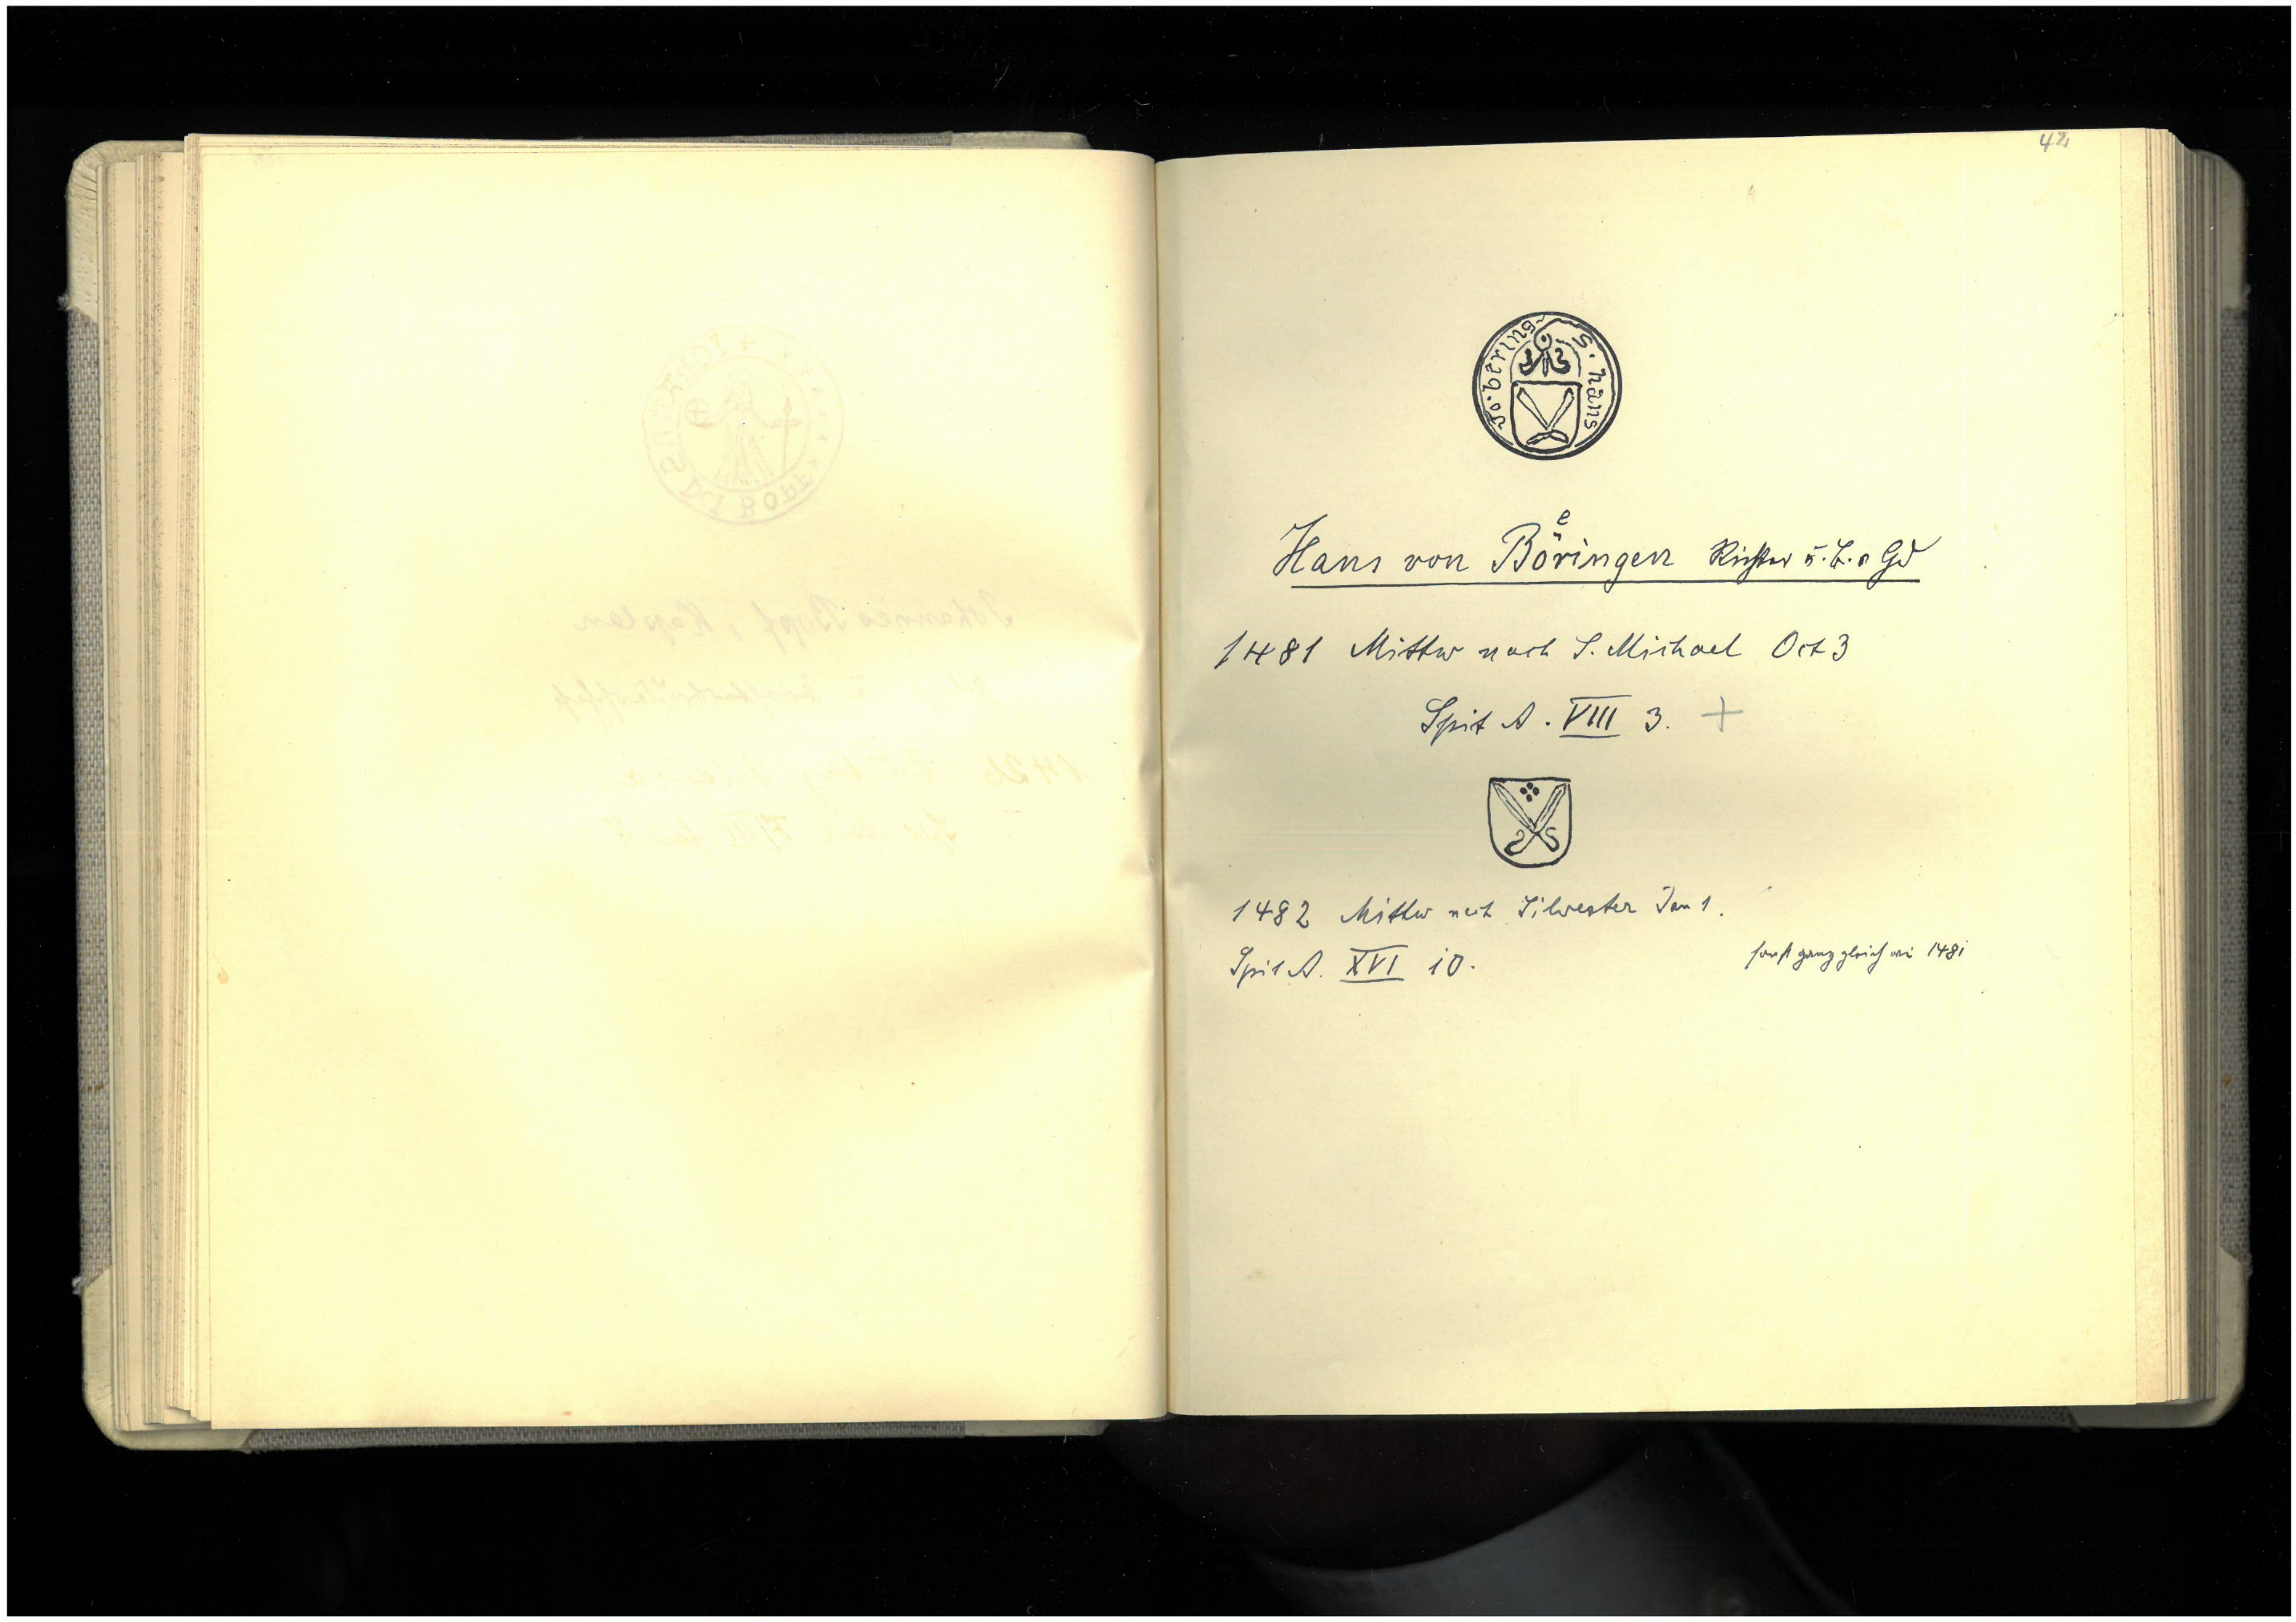 42
S. hans vo. bering
Hans von Böringen Richter u. B. v Gd
1481 Mittw nach S. Michael Oct 3
Spit A. VIII 3. +
1482 Mittw nach Silvester Jan 1.
Spit A. XVI 10.
sonst ganz gleich wie 1481